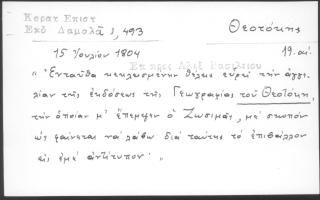 Κοραή Επιστ
Εκδ Δαμαλᾶ 1, 493
Θεοτόκης
15 Ἰουλίου 1804
19. αἰ.
Ἐπ πρὸς Ἀλέξ Βασιλείου
"Ἐνταῦθα κεκλεισμένην θέλεις εὑρεῖ τὴν ἀγγε-
λίαν τῆς ἐκδόσεως τῆς Γεωγραφίας τοῦ Θεοτόκη,
τὴν ὁποίαν μ' ἔπεμψεν ὁ Ζωσιμᾶς, μὲ σκοπὸν
ὡς φαίνεται νὰ λάβω διὰ ταύτης τὸ ἐπιβάλλον
εἰς ἐμὲ ἀντίτυπον."